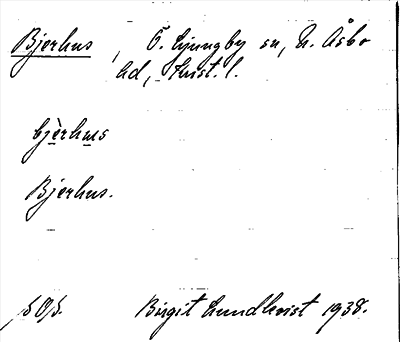 Bjerhus, Ö. Ljungby sn, N. Åsbo
hd, Krist. l.
bjèrhus
Bjerhus.
Birgit Lundkvist 1938.